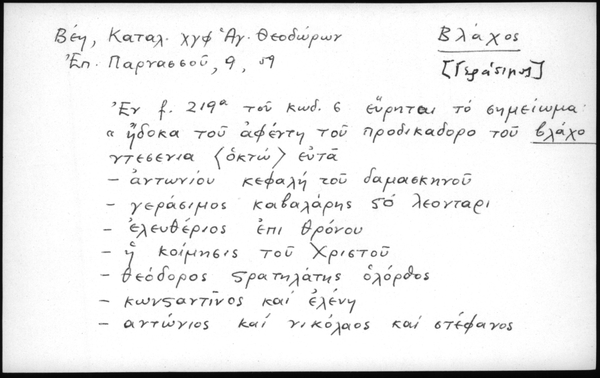 Βέη, Καταλ. χγφ Ἁγ. Θεοδώρων
Βλάχος
Ἐπ. Παρνασσοῦ, 9, 59
[Γεράσιμος]
Ἐν f. 219α τοῦ κωδ. 5 εὕρηται τό σημείωμα:
"ἤδοκα τοῦ ἀφέντη τοῦ προδικαδορο τοῦ βλάχο
ντεσενια <ὀκτώ> εὐτᾶ
– ἀντωνίου κεφαλή τοῦ δαμασκηνοῦ
– γεράσιμος καβαλάρης ςό λεονταρι
– ἐλευθέριος ἐπι θρόνου
– ἡ κοίμησις τοῦ Χριστοῦ
– θεόδορος ςρατηλάτης ὁλόρθος
– κωνςαντῖνος καί ἐλένη
– αντώνιος καί νικόλαος καί στέφανος